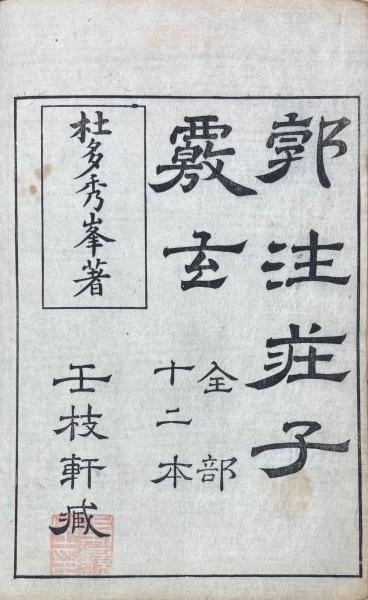 郭注莊子
覈玄
全部
十二本
杜多秀峯著
玉枝軒臧